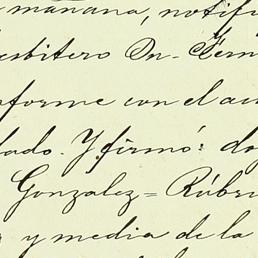 mañana, notifi
esbitero Dn. Ger
nforme con el au
tado. Y firmó: do
Gonzalez = Rúbri
y media de la